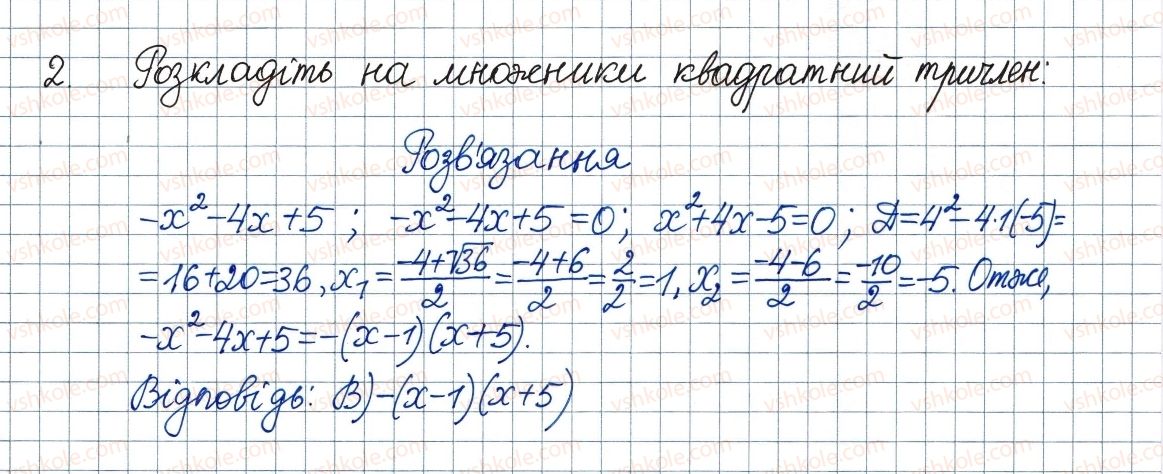 2 Розкладіть на множники квадратний тричлен:
Розв'язання
-x²-4x+5; -x²-4x+5=0; x²+4x-5=0; D=4²-4·1(-5)=
=16+20=36, x₁=(-4+√36)/2=(-4+6)/2=2/2=1, x₂=(-4-6)/2=-10/2=-5. Отже,
-x²-4x+5=-(x-1)(x+5).
Відповідь: В)-(x-1)(x+5)